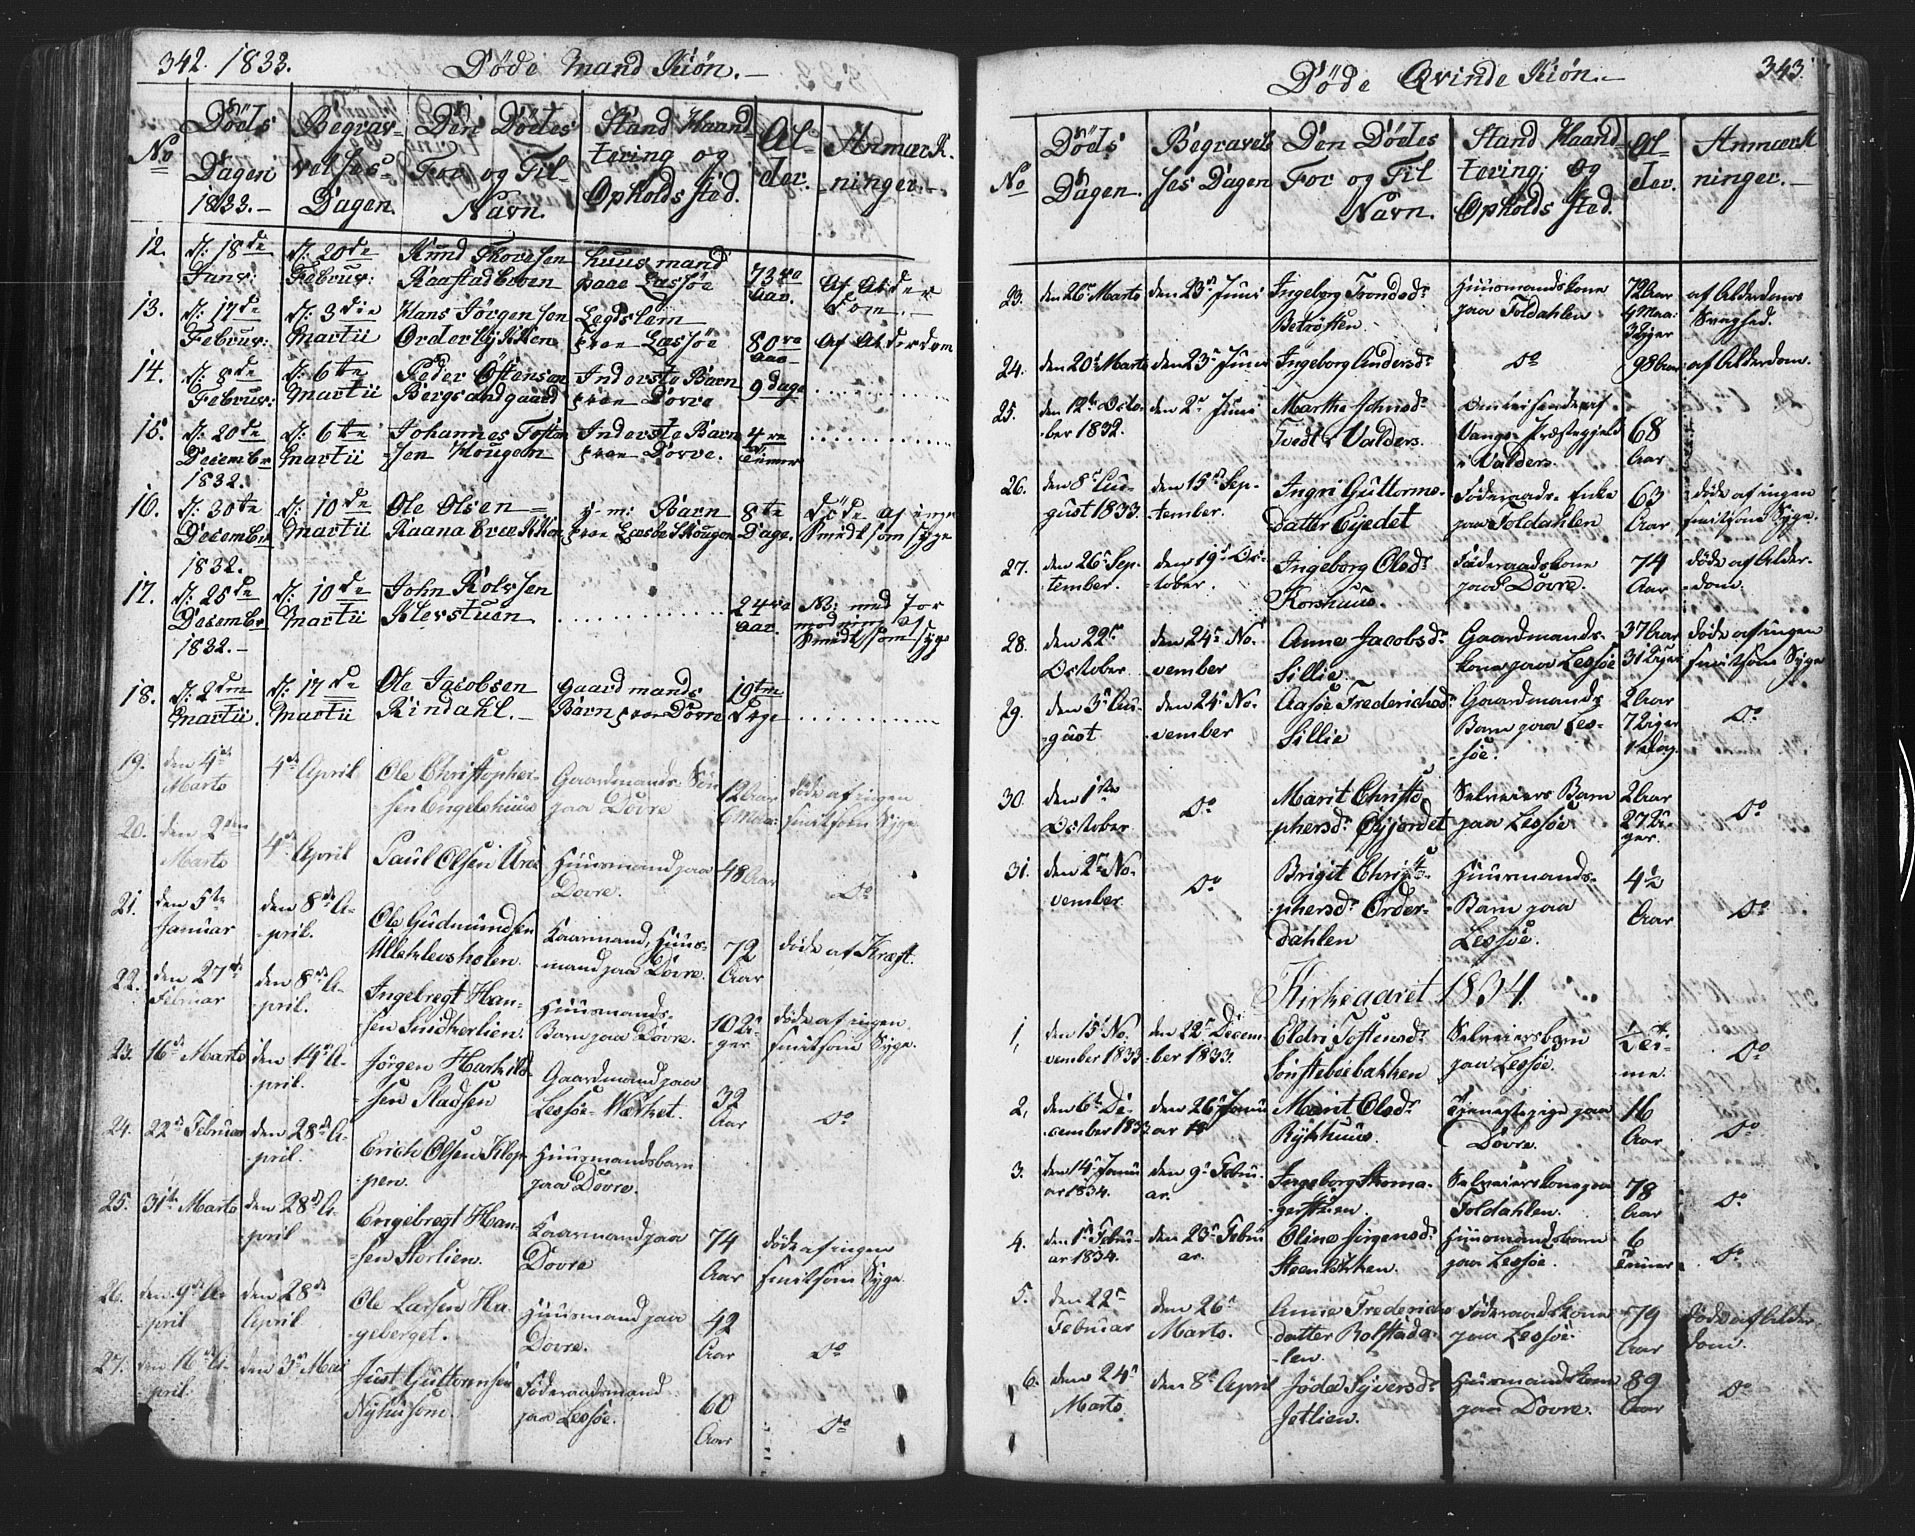 342. 1833. Døde Mand Kiøn.
No
Døds Dagen 1833.
Begravelses Dagen.
Den Dødes For og Til-Navn.
Stand Haandtering og Opholds sted.
Alder.
Anmærkninger.
12. d: 18de Janv: d: 20de Februr: Knud Thoresen Raastadbroen huusmand paae Læssøe 73re Aar. Af Alderdom.
13. d: 17de Februr: d: 3die Martii Hans Jørgensen Legdslem fra Læssøe 80re Aar Af Alderdom
14. d: 8de Februr: d: 6te Martii Peder Østensen Bergsandgaard Inderste Barn fra Dovre 9 Dage
15. d: 20de Decembr 1832. d: 6te Martii Johannes Tostensen Hougen Inderste Barn fra Dovre. 4re Timer
16. d: 30te Decembr 1832. d: 10de Martii Ole Olsen Barn 8te Dage. døde af ingen Smedtsom syge
17. d: 25de Decembr 1832. d: 10de Martii John Rolvsen 24re Aar.
18. d: 2den Martii. d: 17de Martii Ole Jacobsen Rindahl. Gaardmands Barn fra Dovre 19ten Dage
19. den 4de Marts 4de April Ole Christophersen Engelshuus Gaardmands Søn paa Dovre 12 Aar 6 Maa: døde af ingen smitsom Syge
20. den 2den Marts 4de April Paul Olsen Huusmand paa Dovre. 48 Aar Do
21. den 5te Januar den 8de April. Ole Gudmundsen huusmand paa Dovre. 72 Aar døde af Kræft.
22. den 27de Februar den 8de April. Ingebregt Hansen Huusmands-Barn paa Dovre. 10 Uger døde af ingen smitsom Syge.
23. 16de Marts den 14de April. Jørgen Gaardmand paa Lessøe-Værket. 32 Aar Do
24. 22de Februar den 28de April. Erich Olsen Kloppen. Huusmandsbarn paa Dovre.
25. 31te Marts den 28de April Engebregt Hansen Storlien. paa Dovre 74 Aar døde af ingen smitsom Syge
26. den 9de April den 28de April Ole Larsen Hageberget. Huusmand paa Dovre. 42 Aar Do
27. den 16de April. den 3de Mai Just Guttormsen Nyhusom. Føderaadsmand paa Lessøe. 60 Aar Do
Døde Qvinde Kiøn. 343.
No
Døds Dagen.
Begravelses Dagen
Den Dødes For og Til Navn.
Stand Haandtering og Opholds sted.
Alder.
Anmærkninger.
23. den 26de Marts den 23de Juni Ingeborg Trondsdr Huusmandskone paa Foldahlen 72 Aar 4 Maa: 3 Uger af Alderdoms Svaghed.
24. den 20de Marts den 23de Juni Ingeborg Andersdr Do 98 Aar af Alderdom.
25. den 12te October 1832. den 2den Juni Marthe Johnsdr Tvedt i Valders. Vangs Præstegjeld i Valders. 68 Aar
26. den 8de August 1833. den 15de September. Ingri Guttormsdatter Eyedet Føderaads-Enke paa Foldahlen 63 Aar døde af ingen smitsom Syge.
27. den 26de September. den 19de October. Ingeborg Olsdr Korshuus. Føderaadskone paa Dovre. 74 Aar døde af Alderdom.
28. den 22de October. den 24de November Anne Jacobsdr Sillie. Gaardmandskone paa Lessøe 37 Aar 31 Uger døde af ingen smitsom Syge
29. den 3de August den 24de November Aasøe Frederichsdr Sillie Gaardmands-Barn paa Lessøe. 2 Aar 7 Uger 1 Dag. Do
30. den 1ste October Do Marit Christophersdr Øyjordet Selveiers Barn paa Lessøe 2 Aar 27 Uger. Do
31. den 2den November Do Brigit Christophersdr Orderdahlen Huusmands-Barn paa Lessøe. 4 1/2 Aar Do
Kirkeaaret 1834.
1, den 15de November 1833 den 22de December 1833. Eldri Tostensdr Sønsteboebakken Selveiersbarn paa Lessøe. 1/4 Time. Do
2, den 6te December 1833 den 26de Januar 18 Marit Olsdr Rykhuus. Tjenestepige paa Dovre. 16 Aar Do
3. den 14de Januar 1834. den 9de Februar. Ingeborg Selveierskone paa Foldahlen. 78 Aar Do
4. den 1ste Februar 1834. den 23de Februar. Oline Jørgensdr Steenløkken. Huusmandsbarn paa Lessøe. 6 Timer Do
5. den 22de Februar den 26de Marts. Anne Frederichsdatter Rolstadalen. Føderaadskone paa Lessøe. 79 Aar døde af Alderdom.
6. den 24de Marts den 8de April Jøda Syversdr Jetlien. Huusmandskone paa Dovre. 89 Aar Do